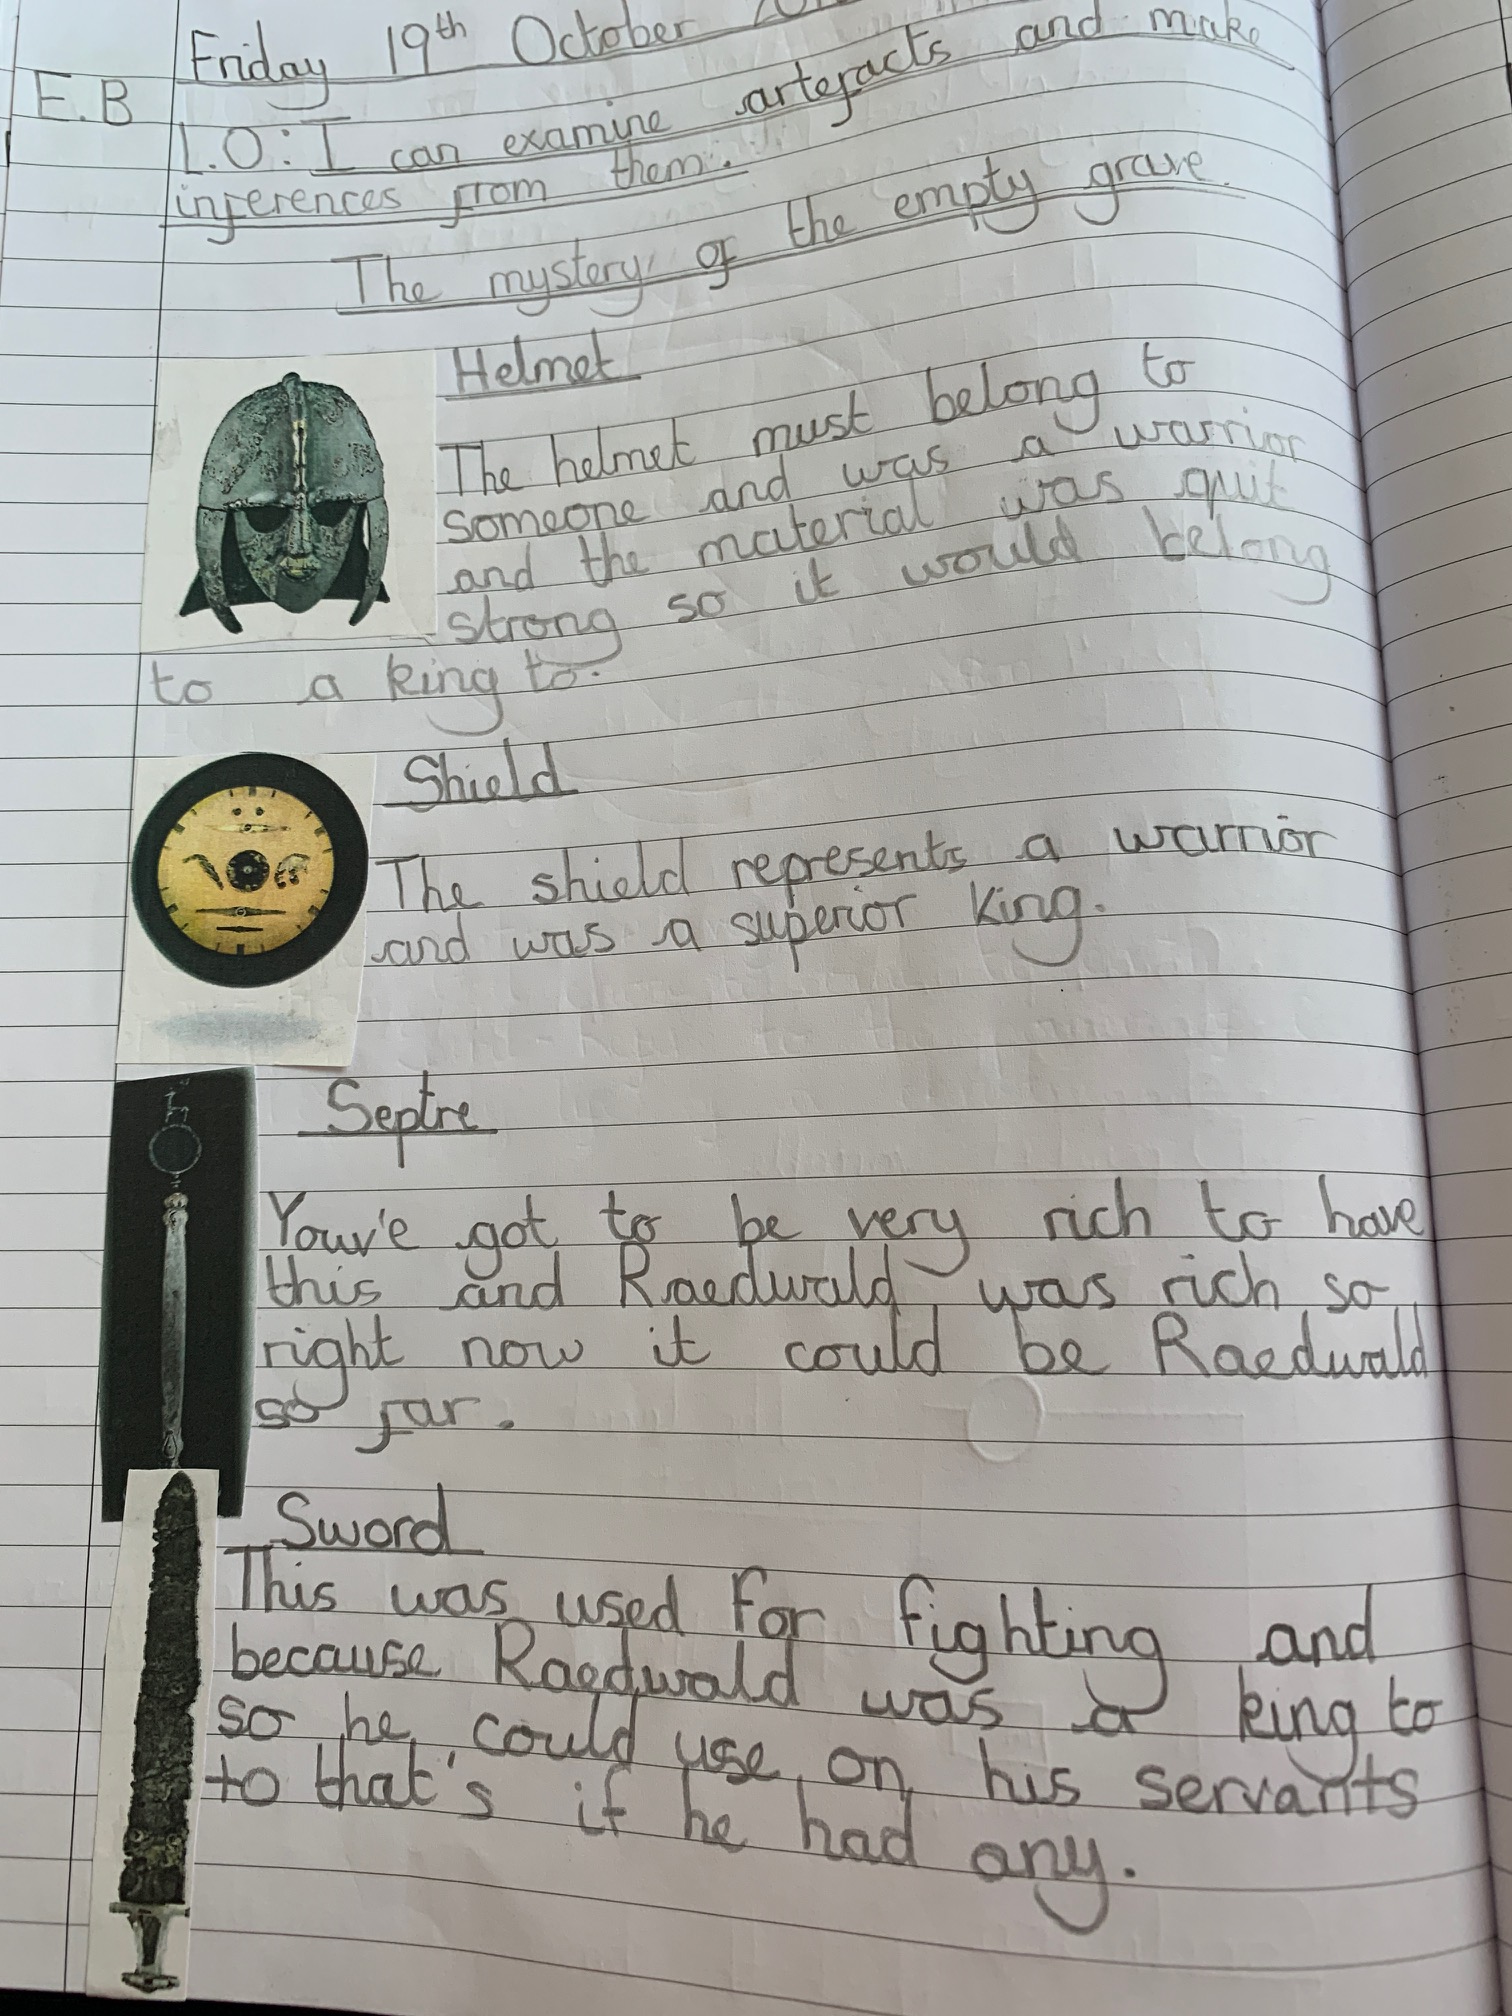 Friday 19th October
E.B
L.O: I can examine artefacts and make
inferences from them.
The mystery of the empty grave.
Helmet
The helmet must belong to
someone and was a warrior
and the material was quit
strong so it would belong
to a king to.
Shield
The shield represents a warrior
and was a superior king.
Septre
Youv'e got to be very rich to have
this and Raedwald was rich so
right now it could be Raedwald
so far.
Sword
This was used for fighting and
because Raedwald was a king to
so he could use on his servants
to that's if he had any.